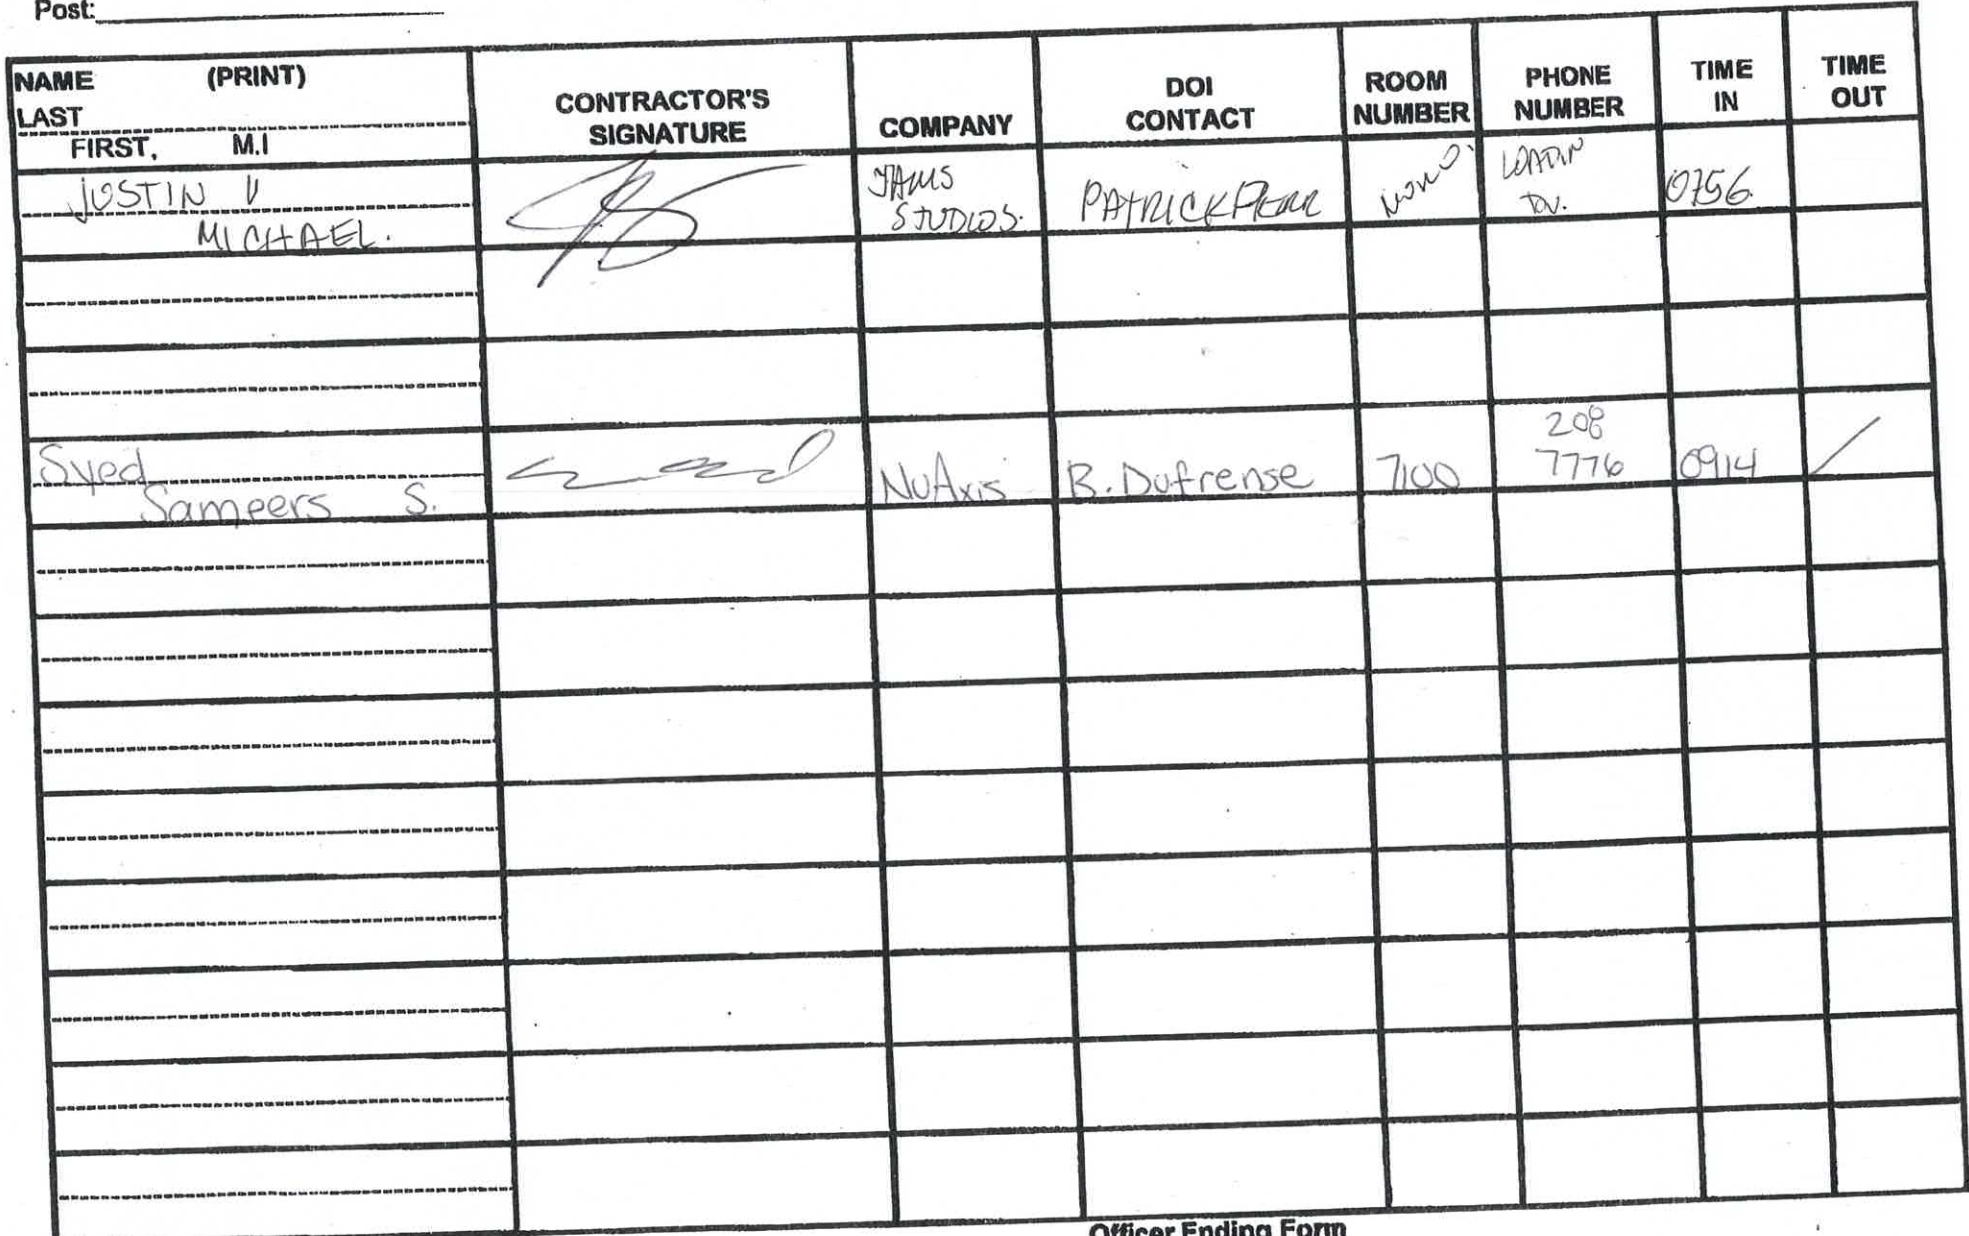 Post:
NAME (PRINT)
LAST
FIRST, M.I
CONTRACTOR'S
SIGNATURE
COMPANY
DOI
CONTACT
ROOM
NUMBER
PHONE
NUMBER
TIME
IN
TIME
OUT
JUSTIN V
MICHAEL.
STUDIOS.
PATRICK
0756
Syed
Sameers S.
NuAxis
B. Dufrense
7100
208
7776
0914
Officer Ending Form